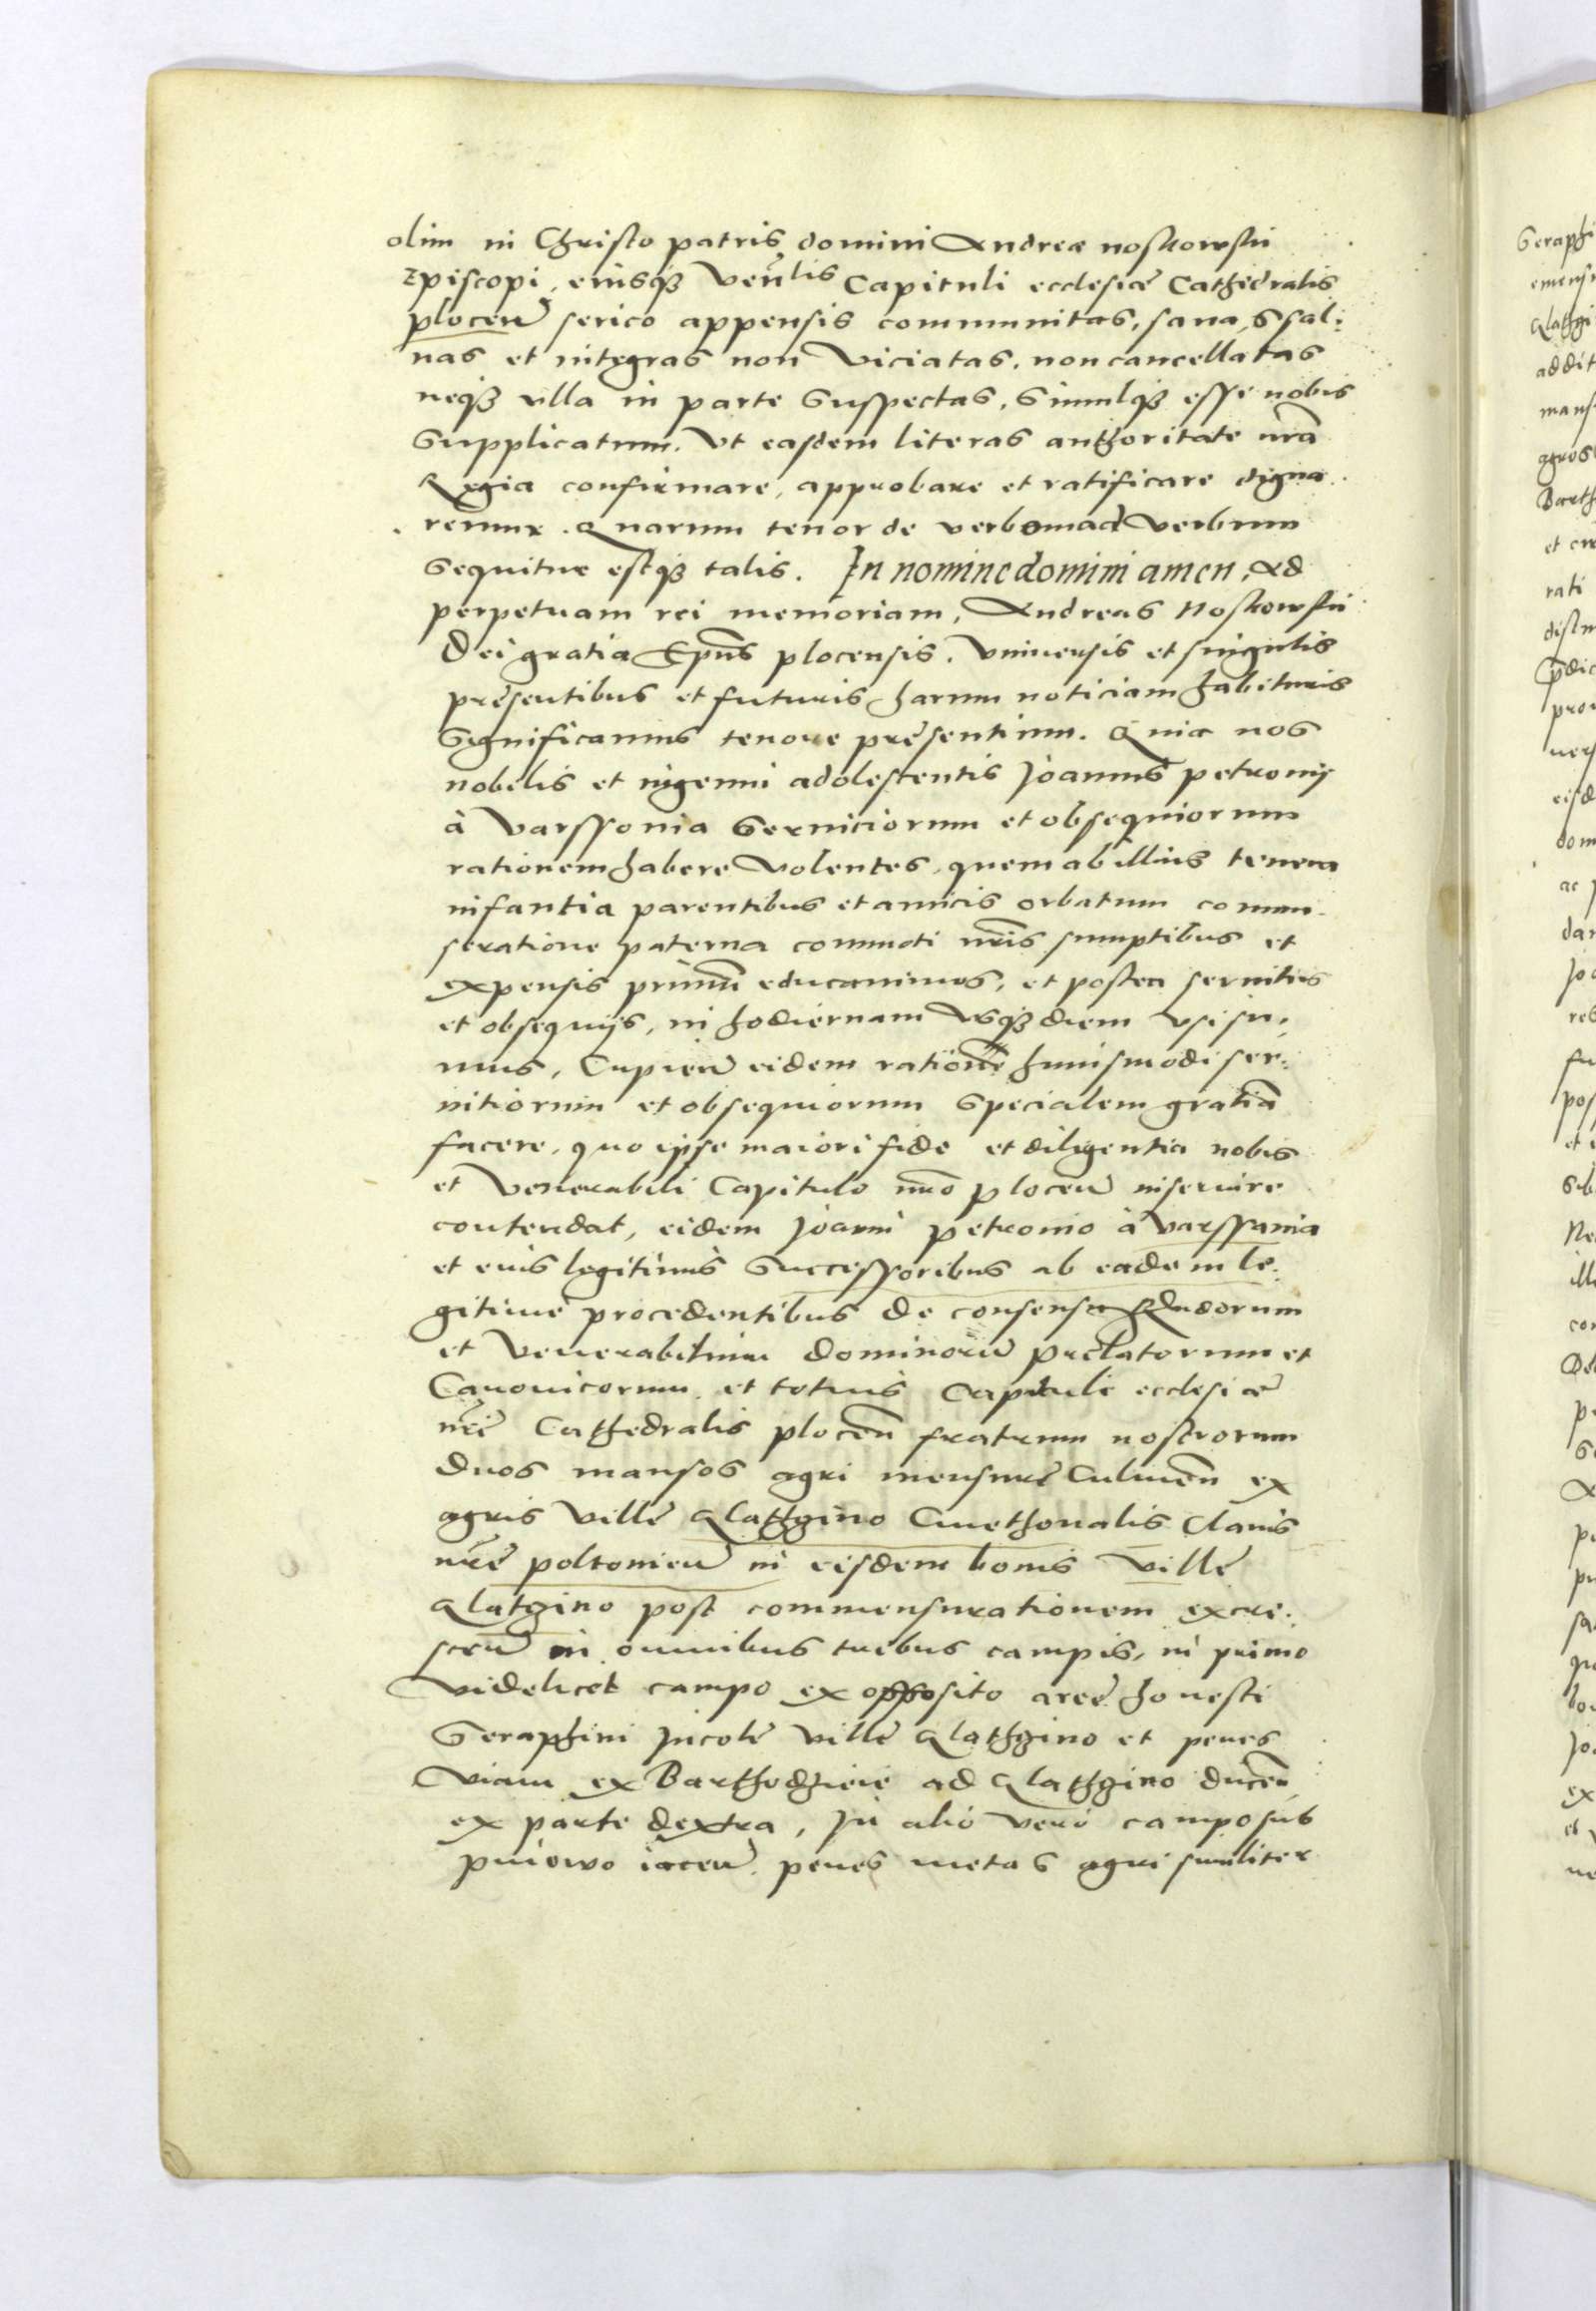 olim in Christo patris domini Andreæ noskowskii
Episcopi, eiusq3 Ven̄lis Capituli ecclesiæ Cathedralis
plocen̄ serico appensis communitas, sanas, sal:
nas et integras non Viciatas, non cancellatas
neq3 vlla in parte Suspectas, Simulq3 esse nobis
Supplicatum. Vt easdem literas authoritate nr̄a
Regia confirmare, approbare et ratificare digna
remur. Quarum tenor de verbo mad Verbum
Sequitur estq3 talis. In nomine domini amen, Ad
perpetuam rei memoriam, Andreas Noskowskii
Dei gratia Ep̄us plocensis. Vniuersis et singulis
presentibus et futuris harum noticiam habituris
Significamus tenore presentium. Quia nos
nobilis et ingenui adolescentis Joannis petronij
à Varssouia Seruitiorum et obsequiorum
rationem habere Volentes, quem ab illius tenera
infantia parentibus et amicis orbatum comm
seratione paterna commoti nr̄is sumptibus et
expensis primū educauimus, et postea seruitiis
et obsequijs, in hodiernam vsq3 diem vsi su:
mus, Cupien̄ eidem ratione huiusmodi ser:
uitiorum et obsequiorum Specialem gratiā
facere, quo ipse maiori fide et diligentia nobis
et Venerabili Capitulo nr̄o plocen̄ inseruire
contendat, eidem Joanni petronio à Varssauia
et eius legitimis Successoribus ab eadem le:
gitime procedentibus de consensu Rndorum
et Venerabilium dominorū prelatorum et
Canonicorum et totius Capituli ecclesiæ
nr̄e Cathedralis plocen̄ fratrum nostrorum
duos mansos agri mensure Culmen̄ ex
agris Ville Glathgino Cmethonalis Clauis
nr̄e poltouien̄ in eisdem bonis Ville
Glatgino post commensurationem excre:
scen̄ in omnibus tribus campis, in primo
Videlicet campo ex opposito aree honesti
Seraphini Jncole Ville Glathgino et penes
Viam ex Barthodzieie ad Glathgino ducen̄
ex parte dextra, Jn alio vero campo sub
pniowo iacen̄ penes metas agri similiter